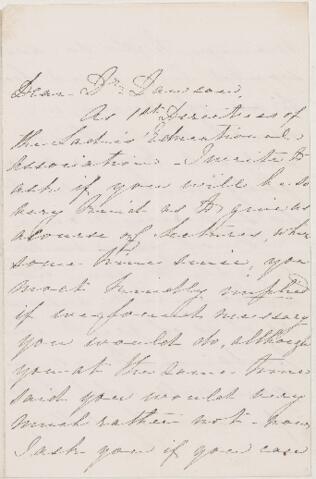 Dear Dr. Dawson,
As 1st Directress of
the Ladies' Educational
Association - I write to
ask if you will be so
very kind as to give us
a course of lectures, when
some time since, you
most kindly
if we found necessary
you would do, although
you at the same time
said you would very
much rather not - now
I ask you if you can